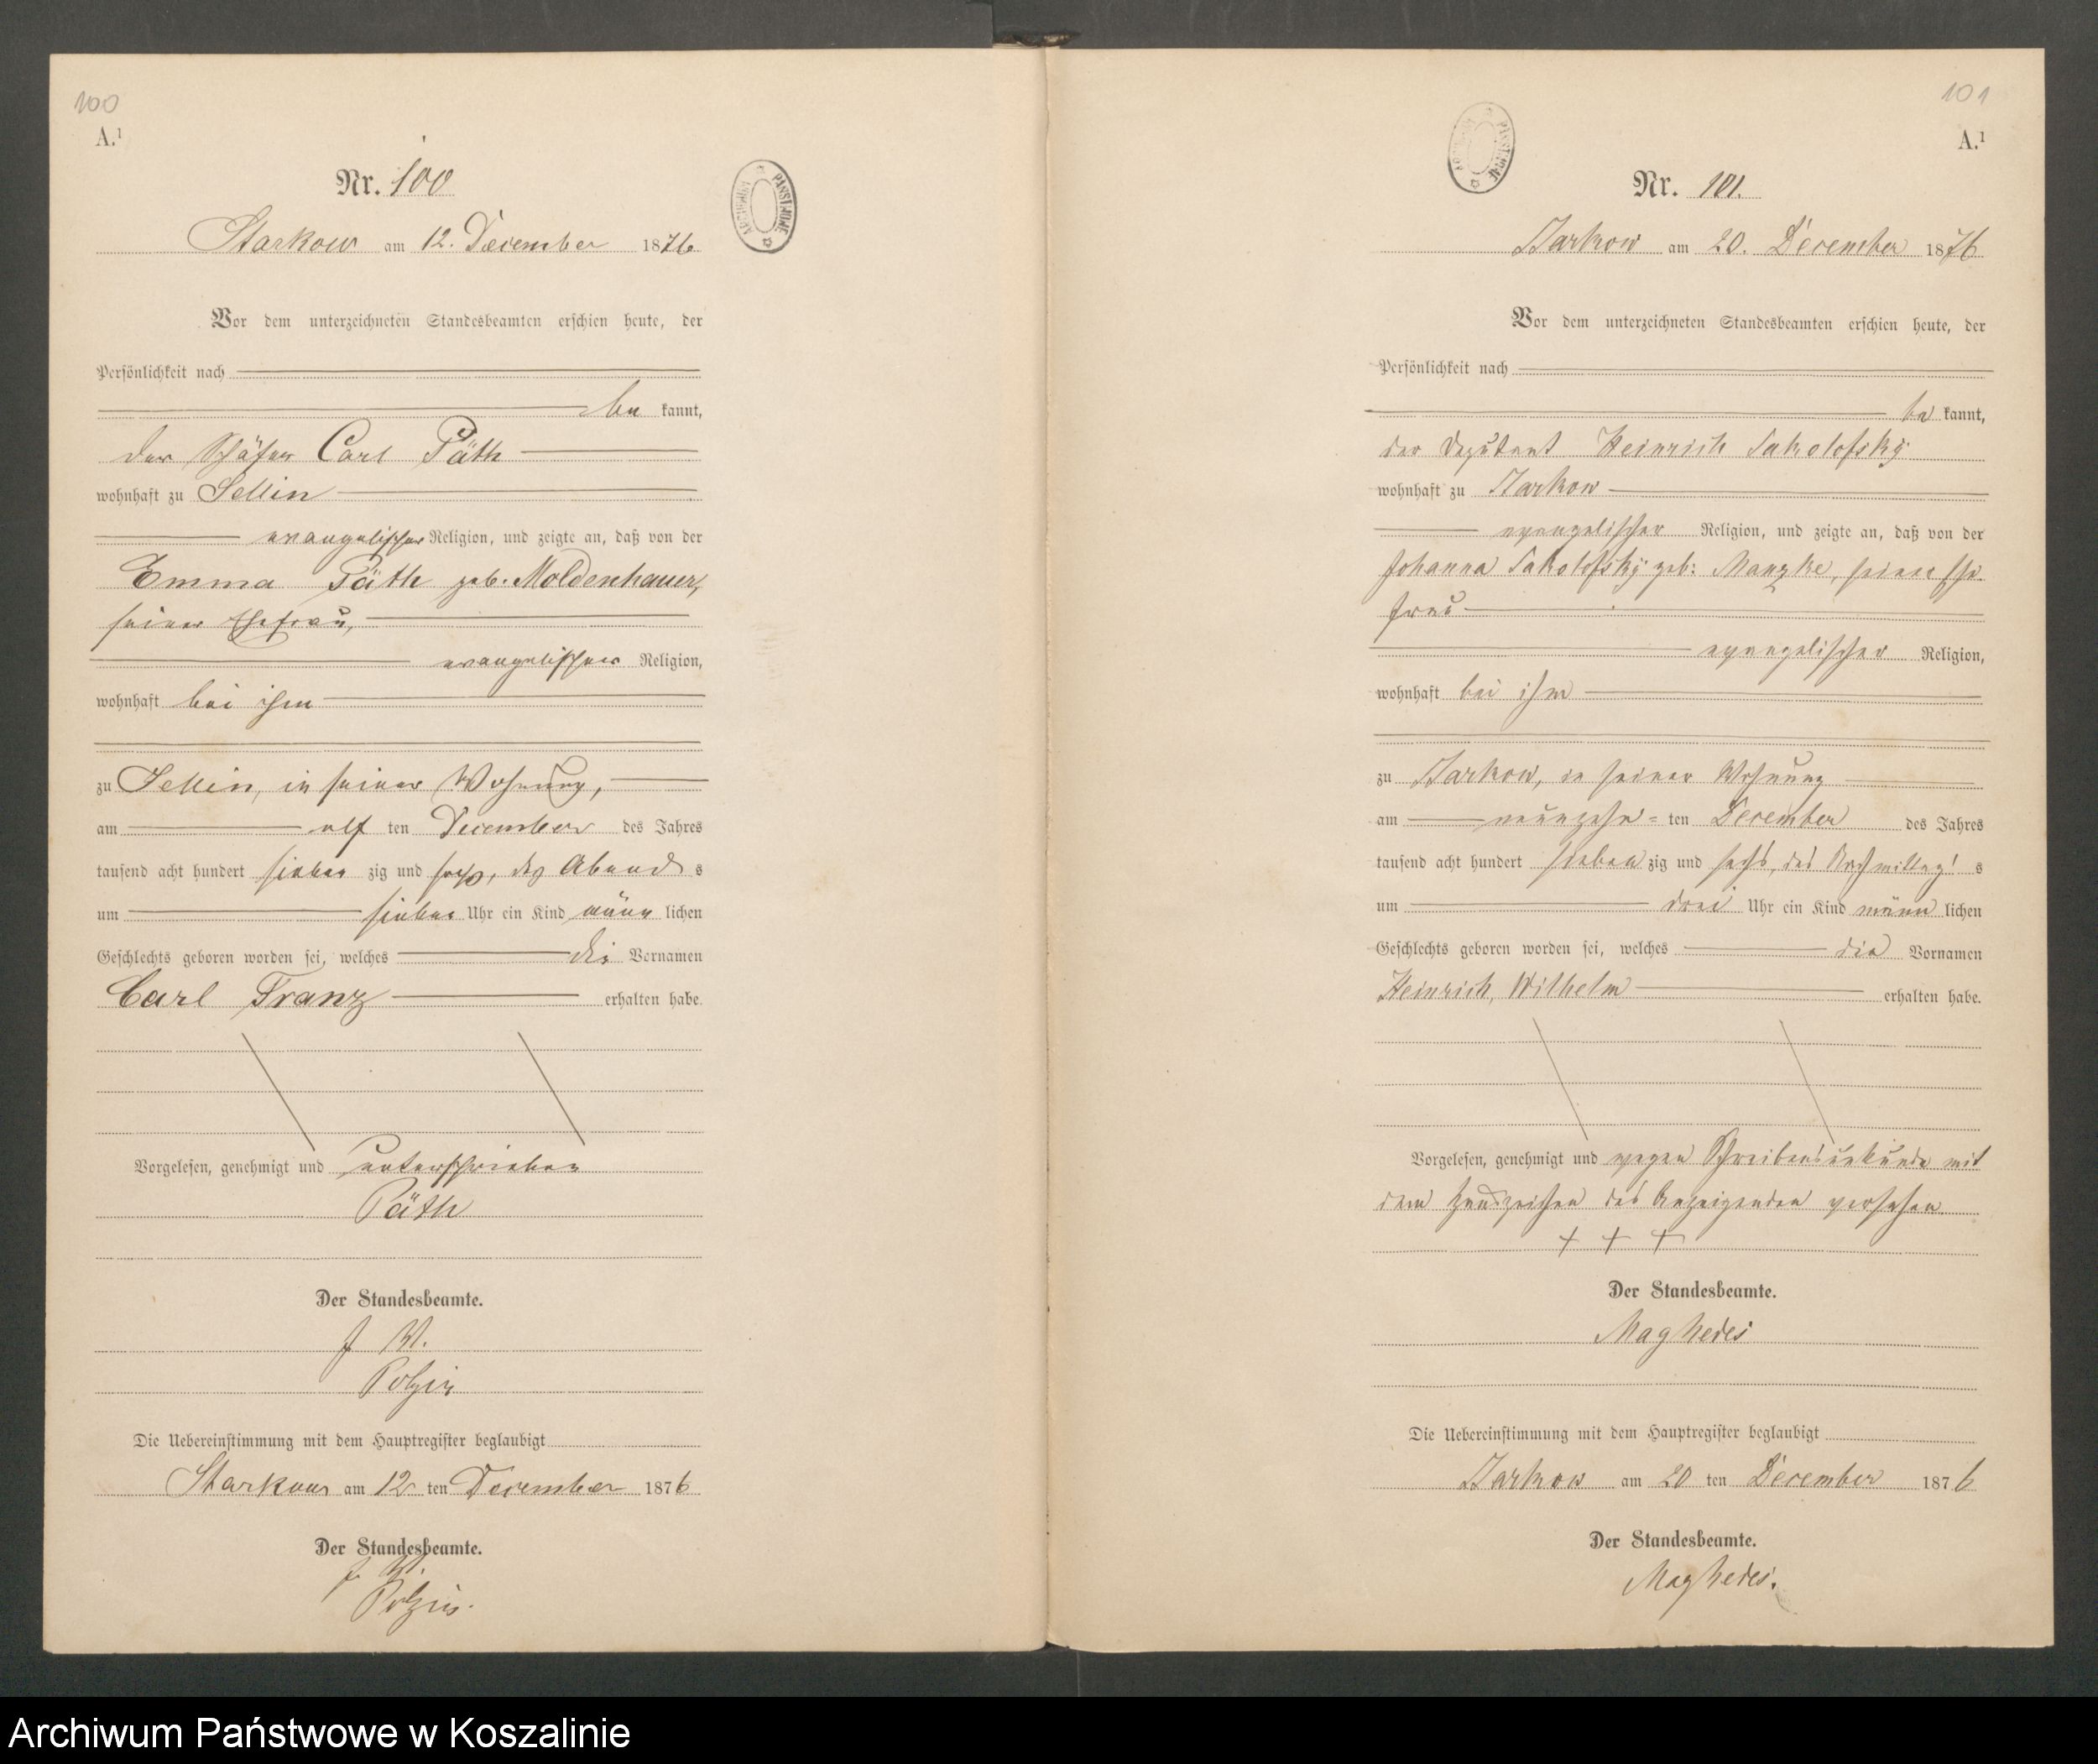 100
A.¹
Nr. 100
ARCHIWUM PAŃSTWOWE
Starkow am 12. December 1876
Vor dem unterzeichneten Standesbeamten erschien heute, der
Persönlichkeit nach
be kannt,
der Schäfer Carl Päth
wohnhaft zu Sellin
evangelischer Religion, und zeigte an, daß von der
Emma Päth geb. Moldenhauer,
seiner Ehefrau,
evangelischer Religion,
wohnhaft bei ihm
zu Sellin, in seiner Wohnung,
am elf ten December des Jahres
tausend acht hundert sieben zig und sechs, des Abend s
um sieben Uhr ein Kind männ lichen
Geschlechts geboren worden sei, welches die Vornamen
Carl Franz erhalten habe.
Vorgelesen, genehmigt und unterschrieben
Päth
Der Standesbeamte.
J. V.
Polzin
Die Uebereinstimmung mit dem Hauptregister beglaubigt
Starkow am 12 ten December 1876
Der Standesbeamte.
J. V.
Polzin.
101
A.¹
ARCHIWUM PAŃSTWOWE
Nr. 101.
Starkow am 20. December 1876
Vor dem unterzeichneten Standesbeamten erschien heute, der
Persönlichkeit nach
be kannt,
der Deputant Heinrich Sakolofsky
wohnhaft zu Starkow
evangelischer Religion, und zeigte an, daß von der
Johanna Sakolofsky geb: Manzke, seiner Ehe
frau
evangelischer Religion,
wohnhaft bei ihm
zu Starkow, in seiner Wohnung
am neunzehn= ten December des Jahres
tausend acht hundert sieben zig und sechs, des Nachmittag s
um drei Uhr ein Kind männ lichen
Geschlechts geboren worden sei, welches die Vornamen
Heinrich, Wilhelm erhalten habe.
Vorgelesen, genehmigt und wegen Schreibensunkunde mit
dem Handzeichen des Anzeigenden versehen
+ + +
Der Standesbeamte.
Die Uebereinstimmung mit dem Hauptregister beglaubigt
Starkow am 20 ten December 1876
Der Standesbeamte.
Archiwum Państwowe w Koszalinie